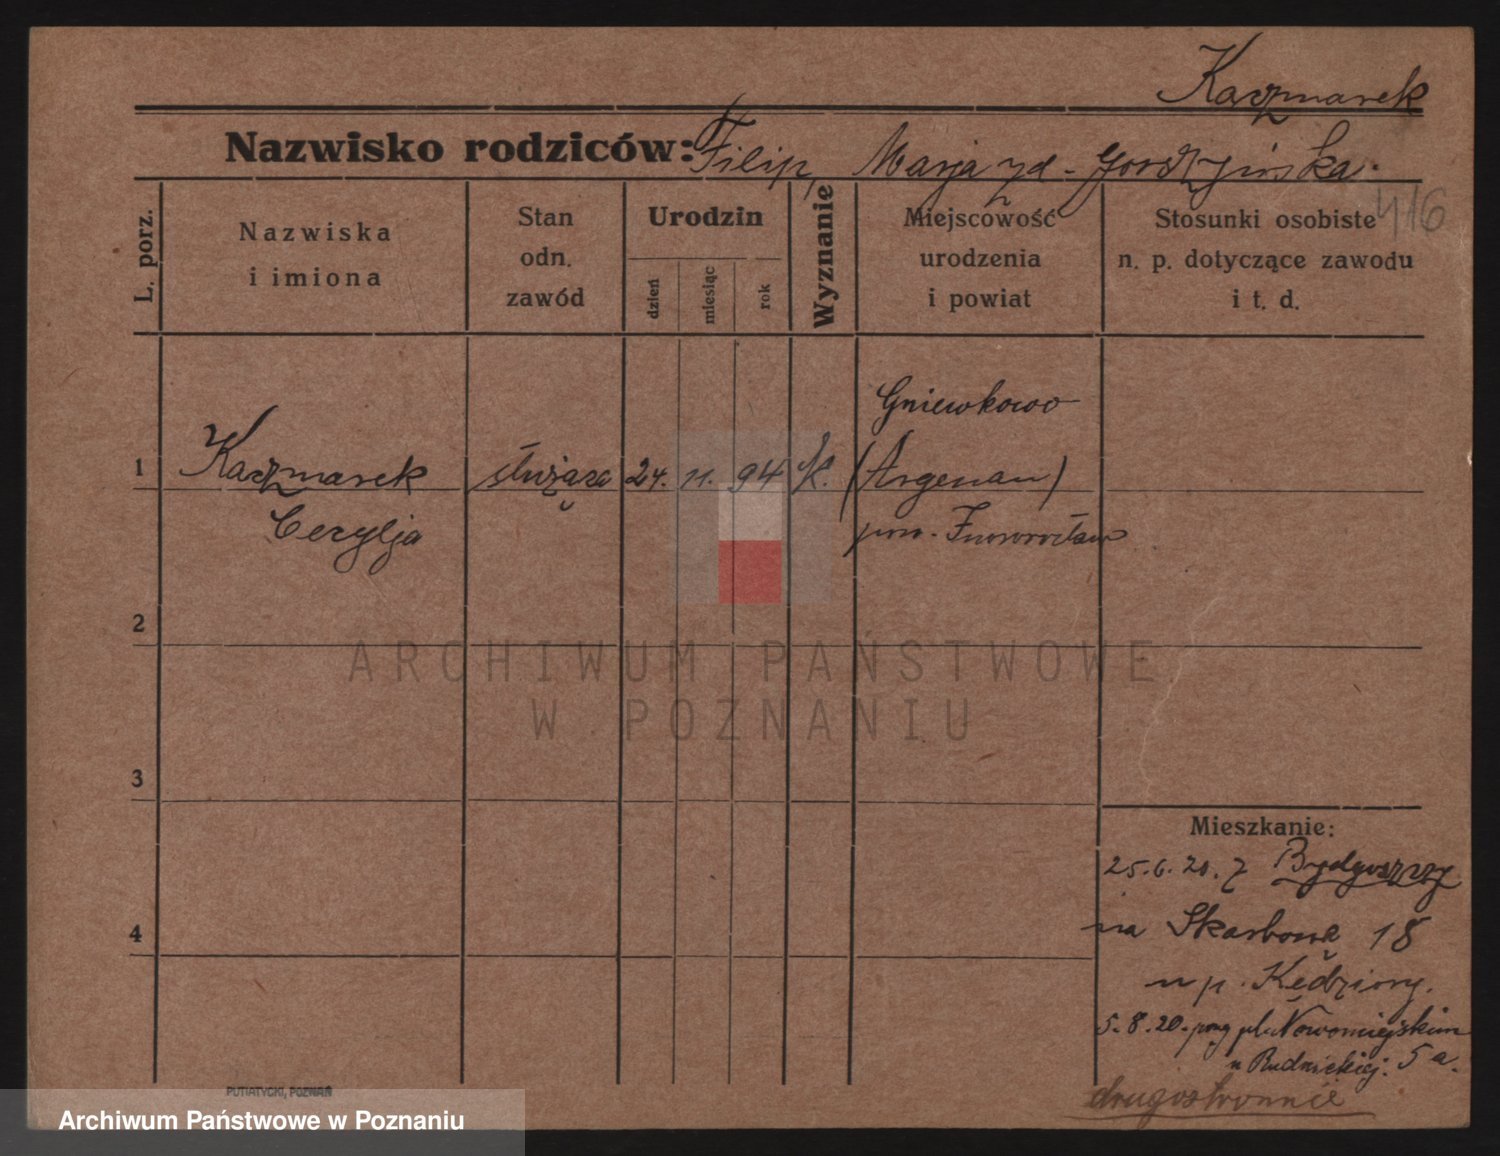 Kaczmarek
Nazwisko rodziców: Filip, Marja zd. Gordzyińska.
416
L. porz.
Nazwiska
i imiona
Stan
odn.
zawód
Urodzin
dzień
miesiąc
rok
Wyznanie
Miejscowość
urodzenia
i powiat
Stosunki osobiste
n. p. dotyczące zawodu
i t. d.
1
Kaczmarek
Cecylja
służąca
24. 11. 94
K.
Gniewkowo
(Argenau)
pow. Inowrocław
2
3
4
Mieszkanie:
25.6.20. z Bydgoszczy
na Skarbową 18
u p. Kędziory.
5.8.20. przy pl. Nowomiejskim
u Rudnickiej. 5a.
drugostronnie
PUTIATYCKI, POZNAŃ
ARCHIWUM PAŃSTWOWE
W POZNANIU
Archiwum Państwowe w Poznaniu